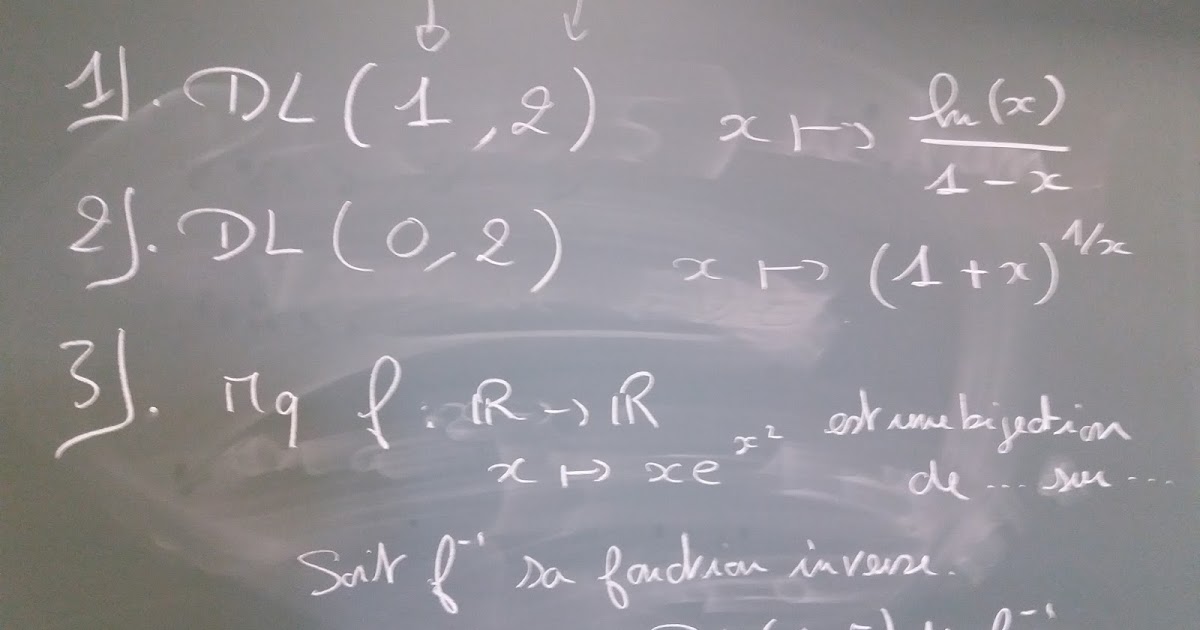 1]. DL(1,2) x ↦ ln(x)/(1-x)
2]. DL(0,2) x ↦ (1+x)^{1/x}
3]. Mq f : ℝ → ℝ est une bijection
x ↦ xe^{x²} de ... sur ...
Soit f⁻¹ sa fonction inverse.
f⁻¹